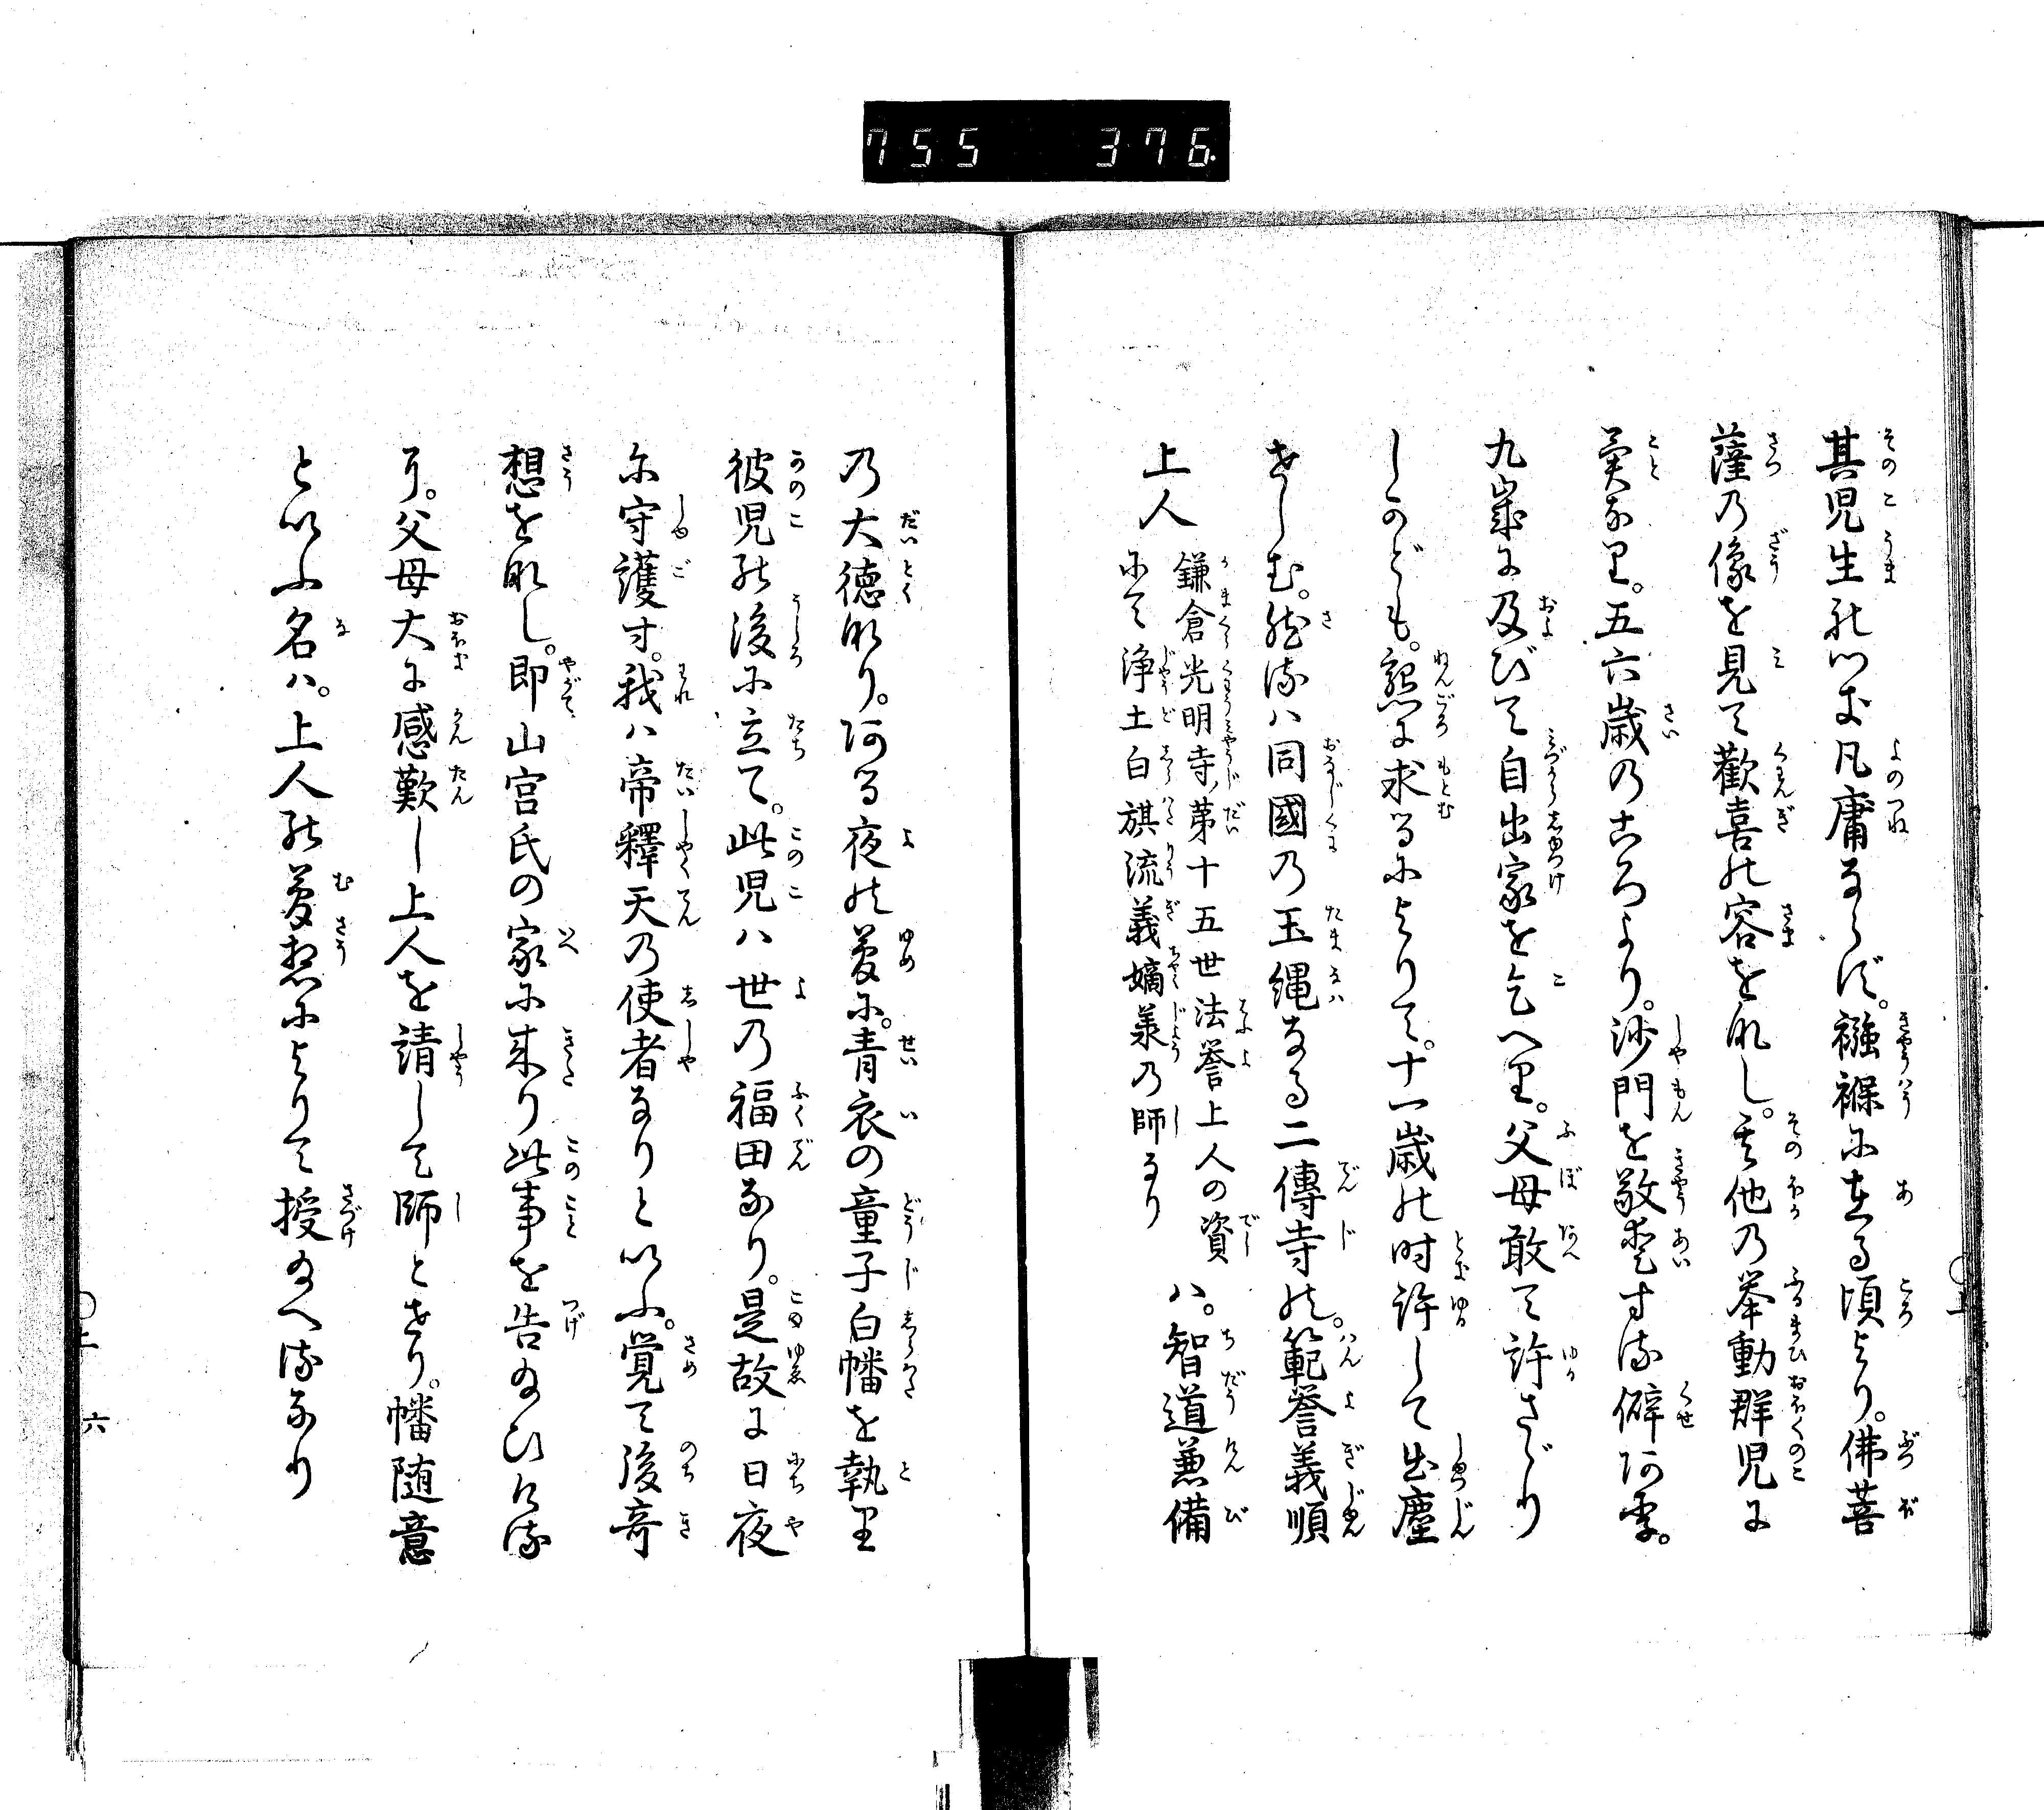 755 376
其児生れつき凡庸ならず。襁褓に在る頃より。佛菩
薩の像を見て歡喜の容をなし。其他の挙動群児に
異なり。五六歳のころより。沙門を敬愛する僻あり。
九歳に及びて自出家を乞へり。父母敢て許さゞり
しかども。懇に求るによりて。十一歳の时許して出塵
せしむ。師は同國の玉縄なる二傳寺の。範誉義順
上人
鎌倉光明寺第十五世法誉上人の資
にて浄土白旗流義嫡羕の師なり
ハ。智道兼備
の大徳なり。ある夜の夢に。青衣の童子白幡を執り
彼児の後に立て。此児ハ世の福田なり。是故に日夜
に守護す。我ハ帝釋天の使者なりといふ。覚て後奇
想をなし。即山宮氏の家に来り此事を告給ひける
に。父母大に感歎し上人を請して師とせり。幡随意
といふ名ハ。上人の夢想によりて授給へるなり
上
上 六